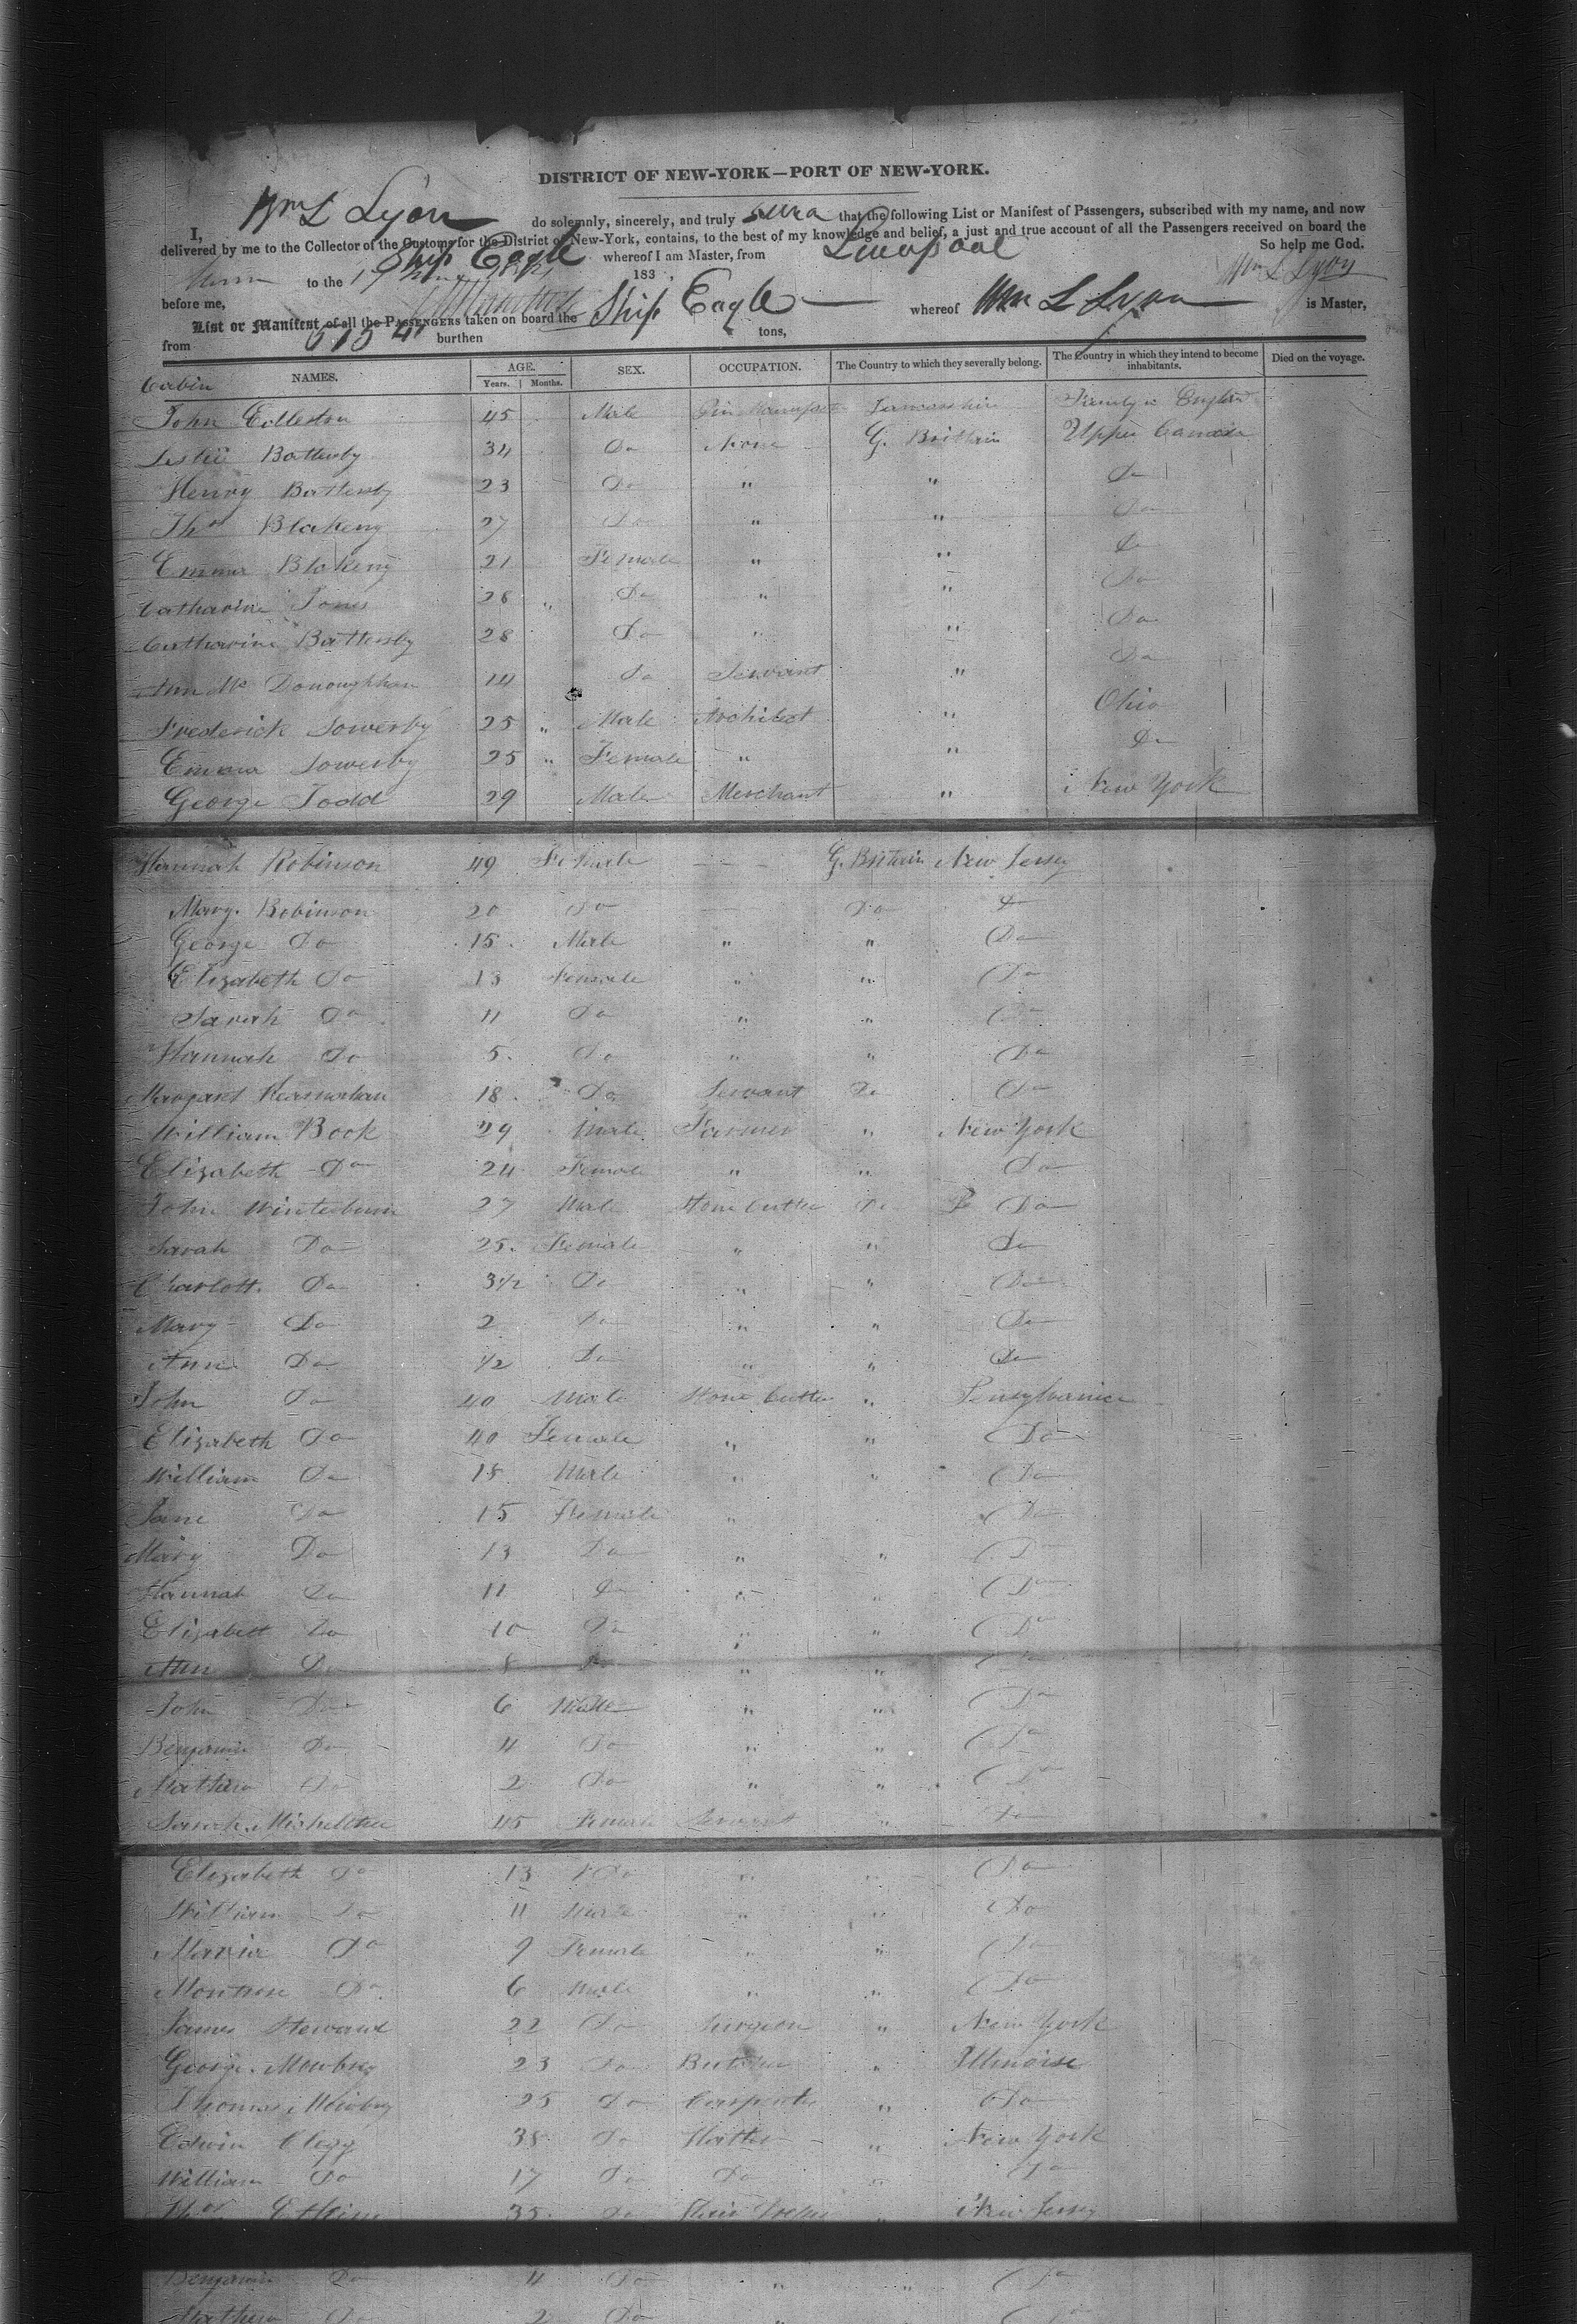 DISTRICT OF NEW-YORK—PORT OF NEW-YORK.
I, Wm L Lyon do solemnly, sincerely, and truly that the following List or Manifest of Passengers, subscribed with my name, and now
delivered by me to the Collector of the Customs for the District of New-York, contains, to the best of my knowledge and belief, a just and true account of all the Passengers received on board the
Ship Eagle whereof I am Master, from Liverpool So help me God.
to the 183 Wm L Lyon
before me,
List or Manifest of all the PASSENGERS taken on board the Ship Eagle whereof Wm L Lyon is Master,
from burthen tons,
Cabin NAMES. AGE. Years. Months. SEX. OCCUPATION. The Country to which they severally belong. The Country in which they intend to become inhabitants. Died on the voyage.
John 45 Male England
Leslie Battersby 34 Do None G. Brittain Upper Canada
Henry Battersby 23 Do " " Do
Thos Blakeny 27 Do " " Do
Emma Blakeny 21 Female " " Do
Catharine Jones 28 " Do " " Do
Catharine Battersby 28 Do " " Do
Ann Mc Donoughhan 14 Do Servant " Do
Frederick Sowerby 25 " Male Architect " Ohio
Emma Sowerby 25 " Female " " Do
George Todd 29 Male Merchant " New York
Hannah Robinson 49 Female — G. Britain New Jersey
Mary Robinson 20 Do — Do Do
George Do 15 Male " " Do
Elizabeth Do 13 Female " " Do
Sarah Do 11 Do " " Do
Hannah Do 5 Do " " Do
Margaret 18 Do Servant Do Do
William Book 29 Male Farmer " New York
Elizabeth Do 24 Female " " Do
John Winterburn 27 Male Stone Cutter Do Do
Sarah Do 25 Female " " Do
Charlott Do 3 1/2 Do " " Do
Mary Do 2 Do " " Do
Ann Do 1/2 Do " " Do
John Do 40 Male Stone Cutter " Pensylvania
Elizabeth Do 40 Female " " Do
William Do 18 Male " " Do
Jane Do 15 Female " Do
Mary Do 13 Do " " Do
Hannah Do 11 Do " " Do
Elizabeth Do 10 Do " " Do
Ann Do 8 Do " " Do
John Do 6 Male " " Do
Benjamin Do 4 Do " " Do
Mathew Do 2 Do " " Do
Sarah 45 Female Servant " Do
Elizabeth Do 13 Do " " Do
William Do 11 Male " " Do
Maria Do 9 Female " " Do
Do 6 Male " " Do
James Steward 22 Do Surgeon " New York
George Mowbray 23 Do Butcher " Illinoise
Thomas 25 Do Carpenter " Do
Edwin Clegg 38 Do Hatter " New York
William Do 17 Do Do " Do
Thos 35 Do " New Jersey
Benjamin Do 4 Do " " Do
Mathew Do 2 Do " Do